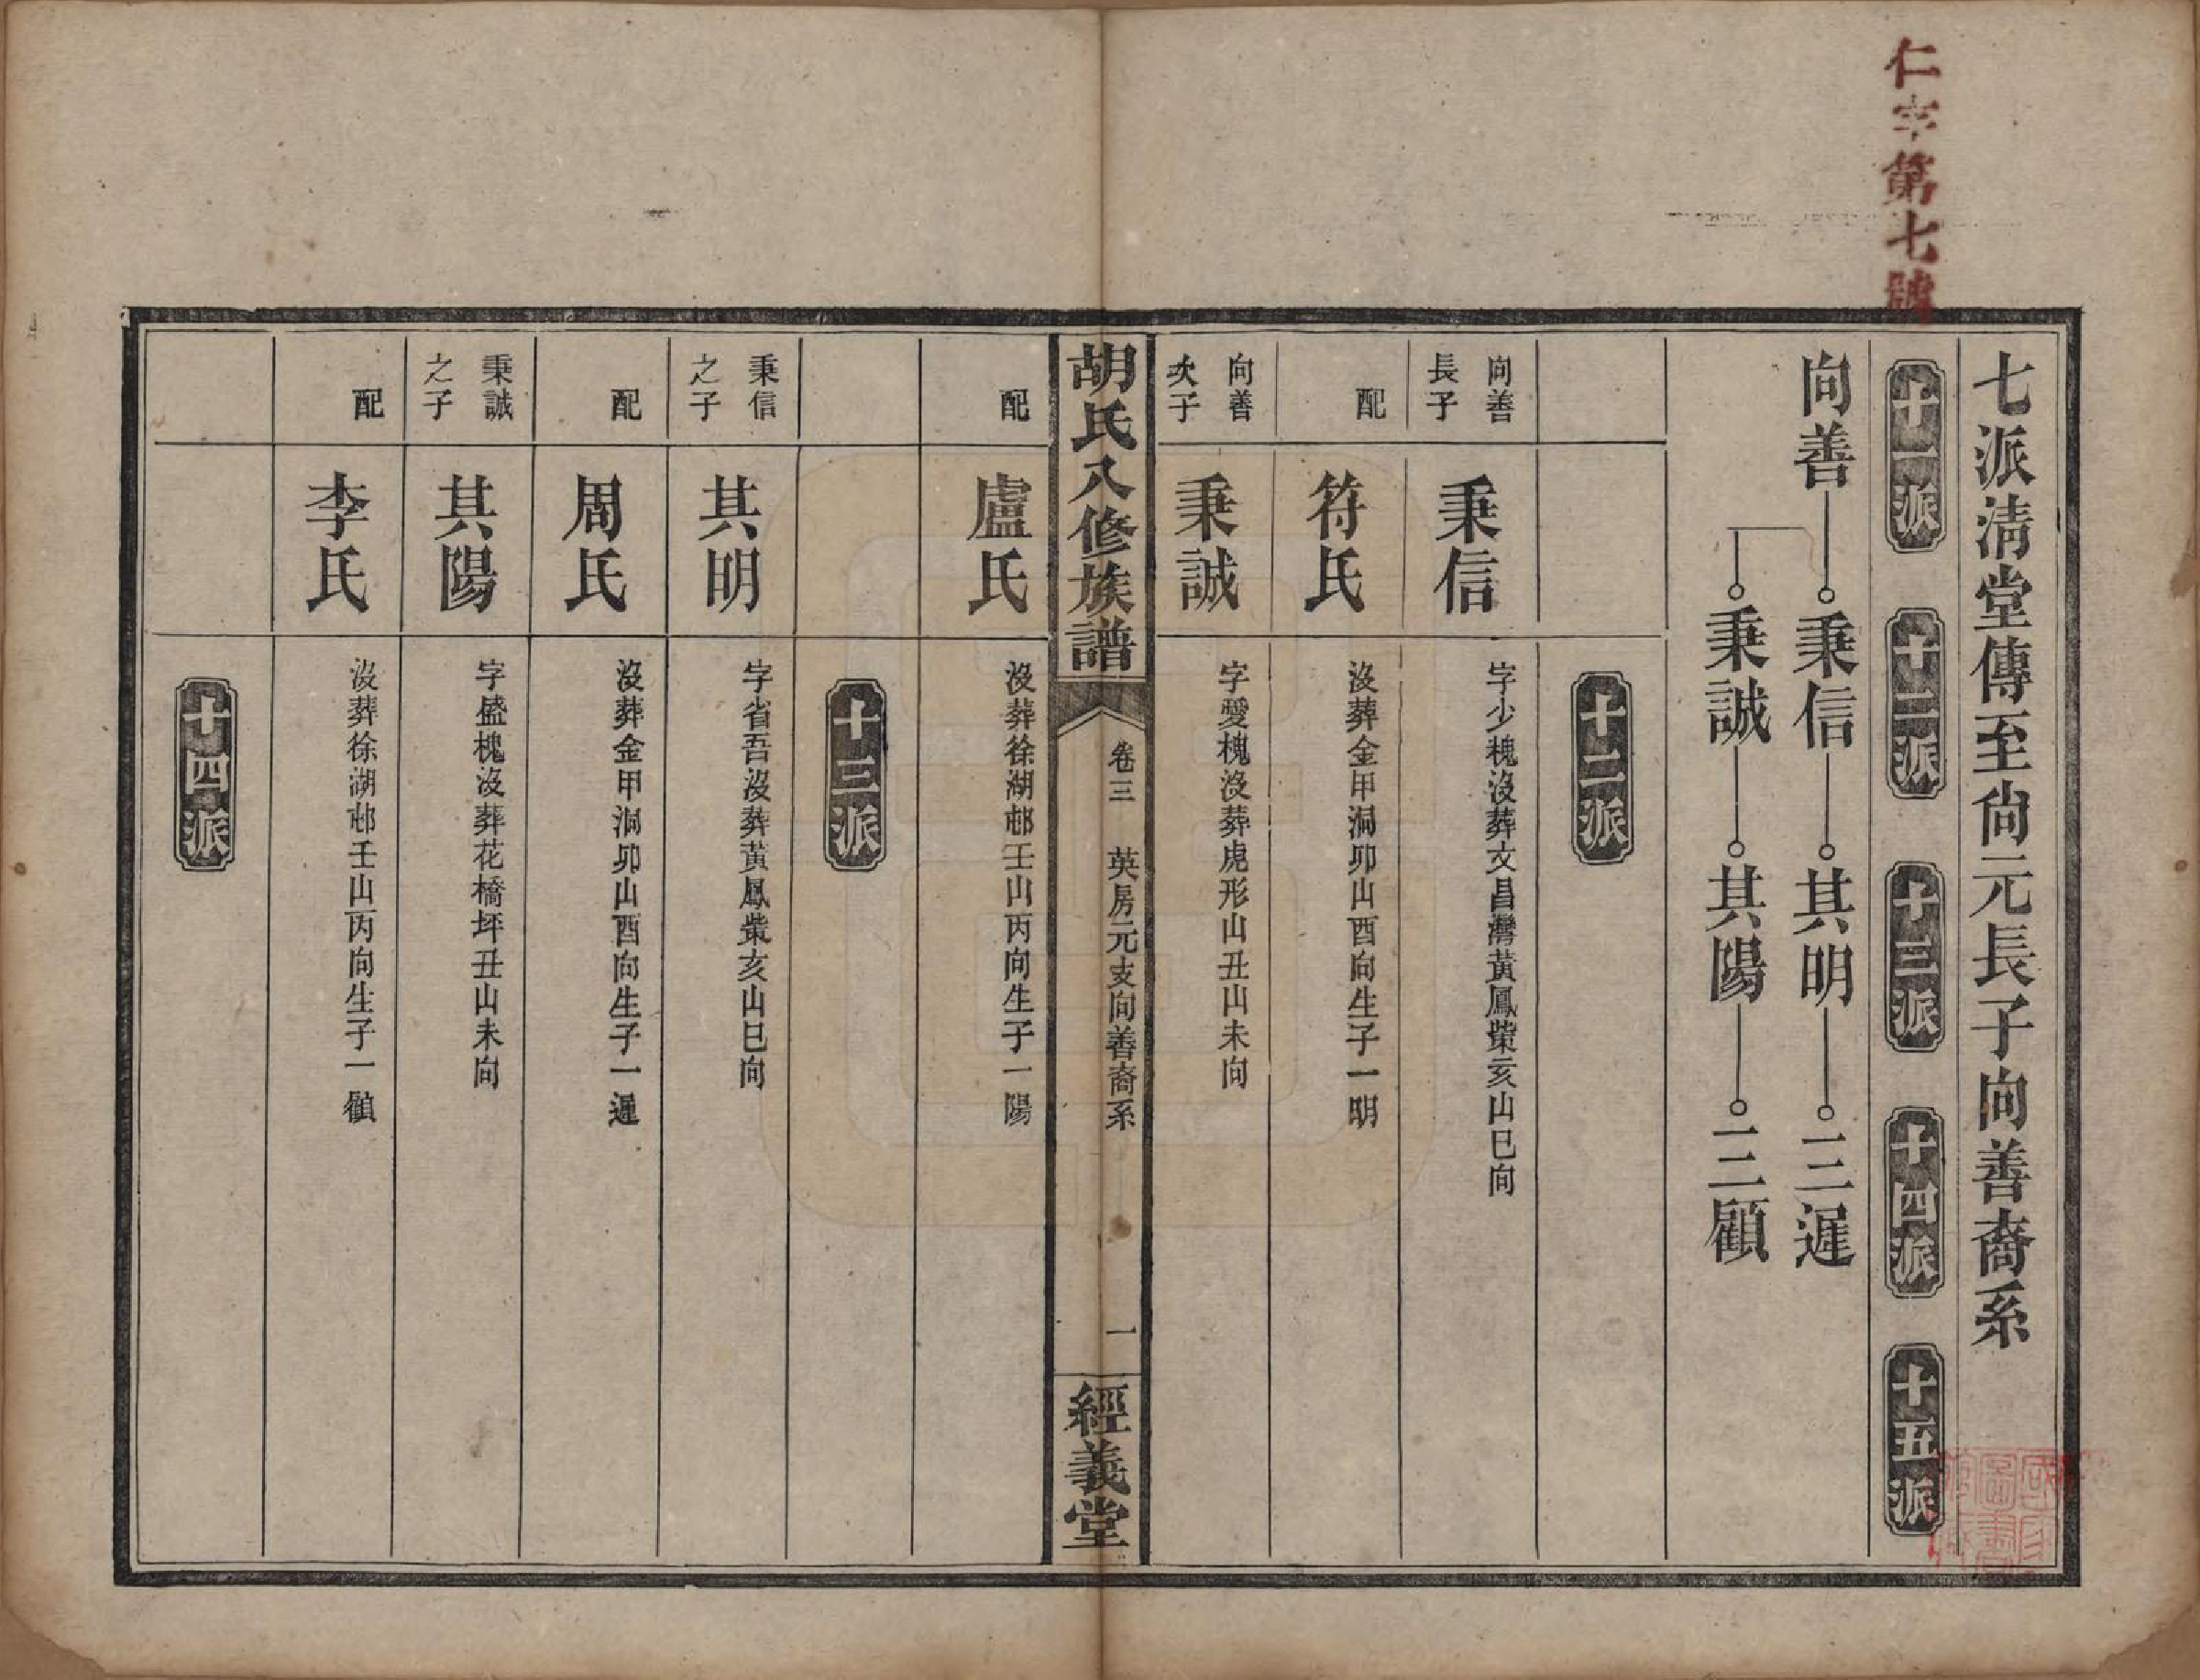 仁字第七號
七派淸堂傳至尙元長子向善裔系
十一派　十二派　十三派　十四派　十五派
向善　秉信　其明　三遲
秉誠　其陽　三顧
十二派
向善長子　秉信　字少槐沒葬文昌灣黃鳳棠亥山巳向
配　符氏　沒葬金甲洞卯山酉向生子一明
向善次子　秉誠　字愛槐沒葬虎形山丑山未向
胡氏八修族譜　卷三　英房元支向善裔系　一　經義堂
配　盧氏　沒葬徐湖邨壬山丙向生子一陽
十三派
秉信之子　其明　字省吾沒葬黃鳳棠亥山巳向
配　周氏　沒葬金甲洞卯山酉向生子一遲
秉誠之子　其陽　字盛槐沒葬花橋坪丑山未向
配　李氏　沒葬徐湖邨壬山丙向生子一顧
十四派